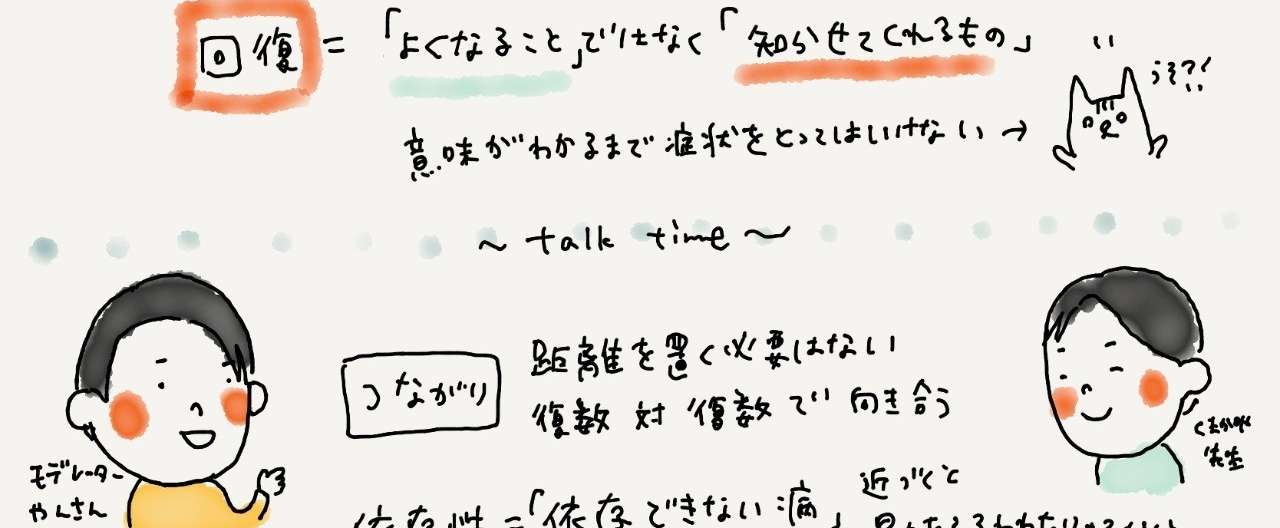 回復=「よくなること」ではなく「知らせてくれるもの」
うそ?!
意味がわかるまで症状をとってはいけない→
～talk time～
つながり
距離を置く必要はない
復数 対 復数で 向き合う
モデレーター
やんさん
先生
依存性=「依存できない病」
近づくと